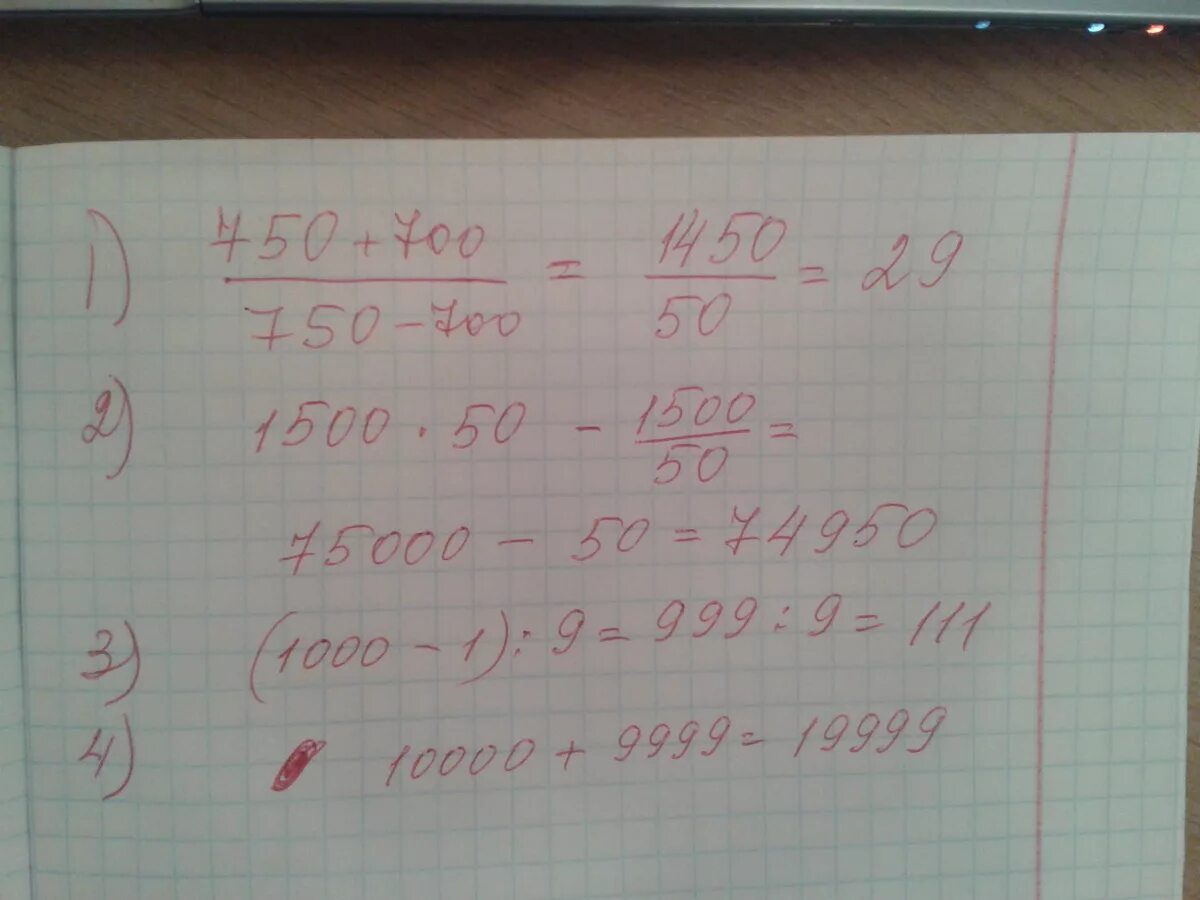 1) 750 + 700 / 750 - 700 = 1450 / 50 = 29
2) 1500 · 50 - 1500 / 50 =
75000 - 50 = 74950
3) (1000 - 1) : 9 = 999 : 9 = 111
4) 10000 + 9999 = 19999